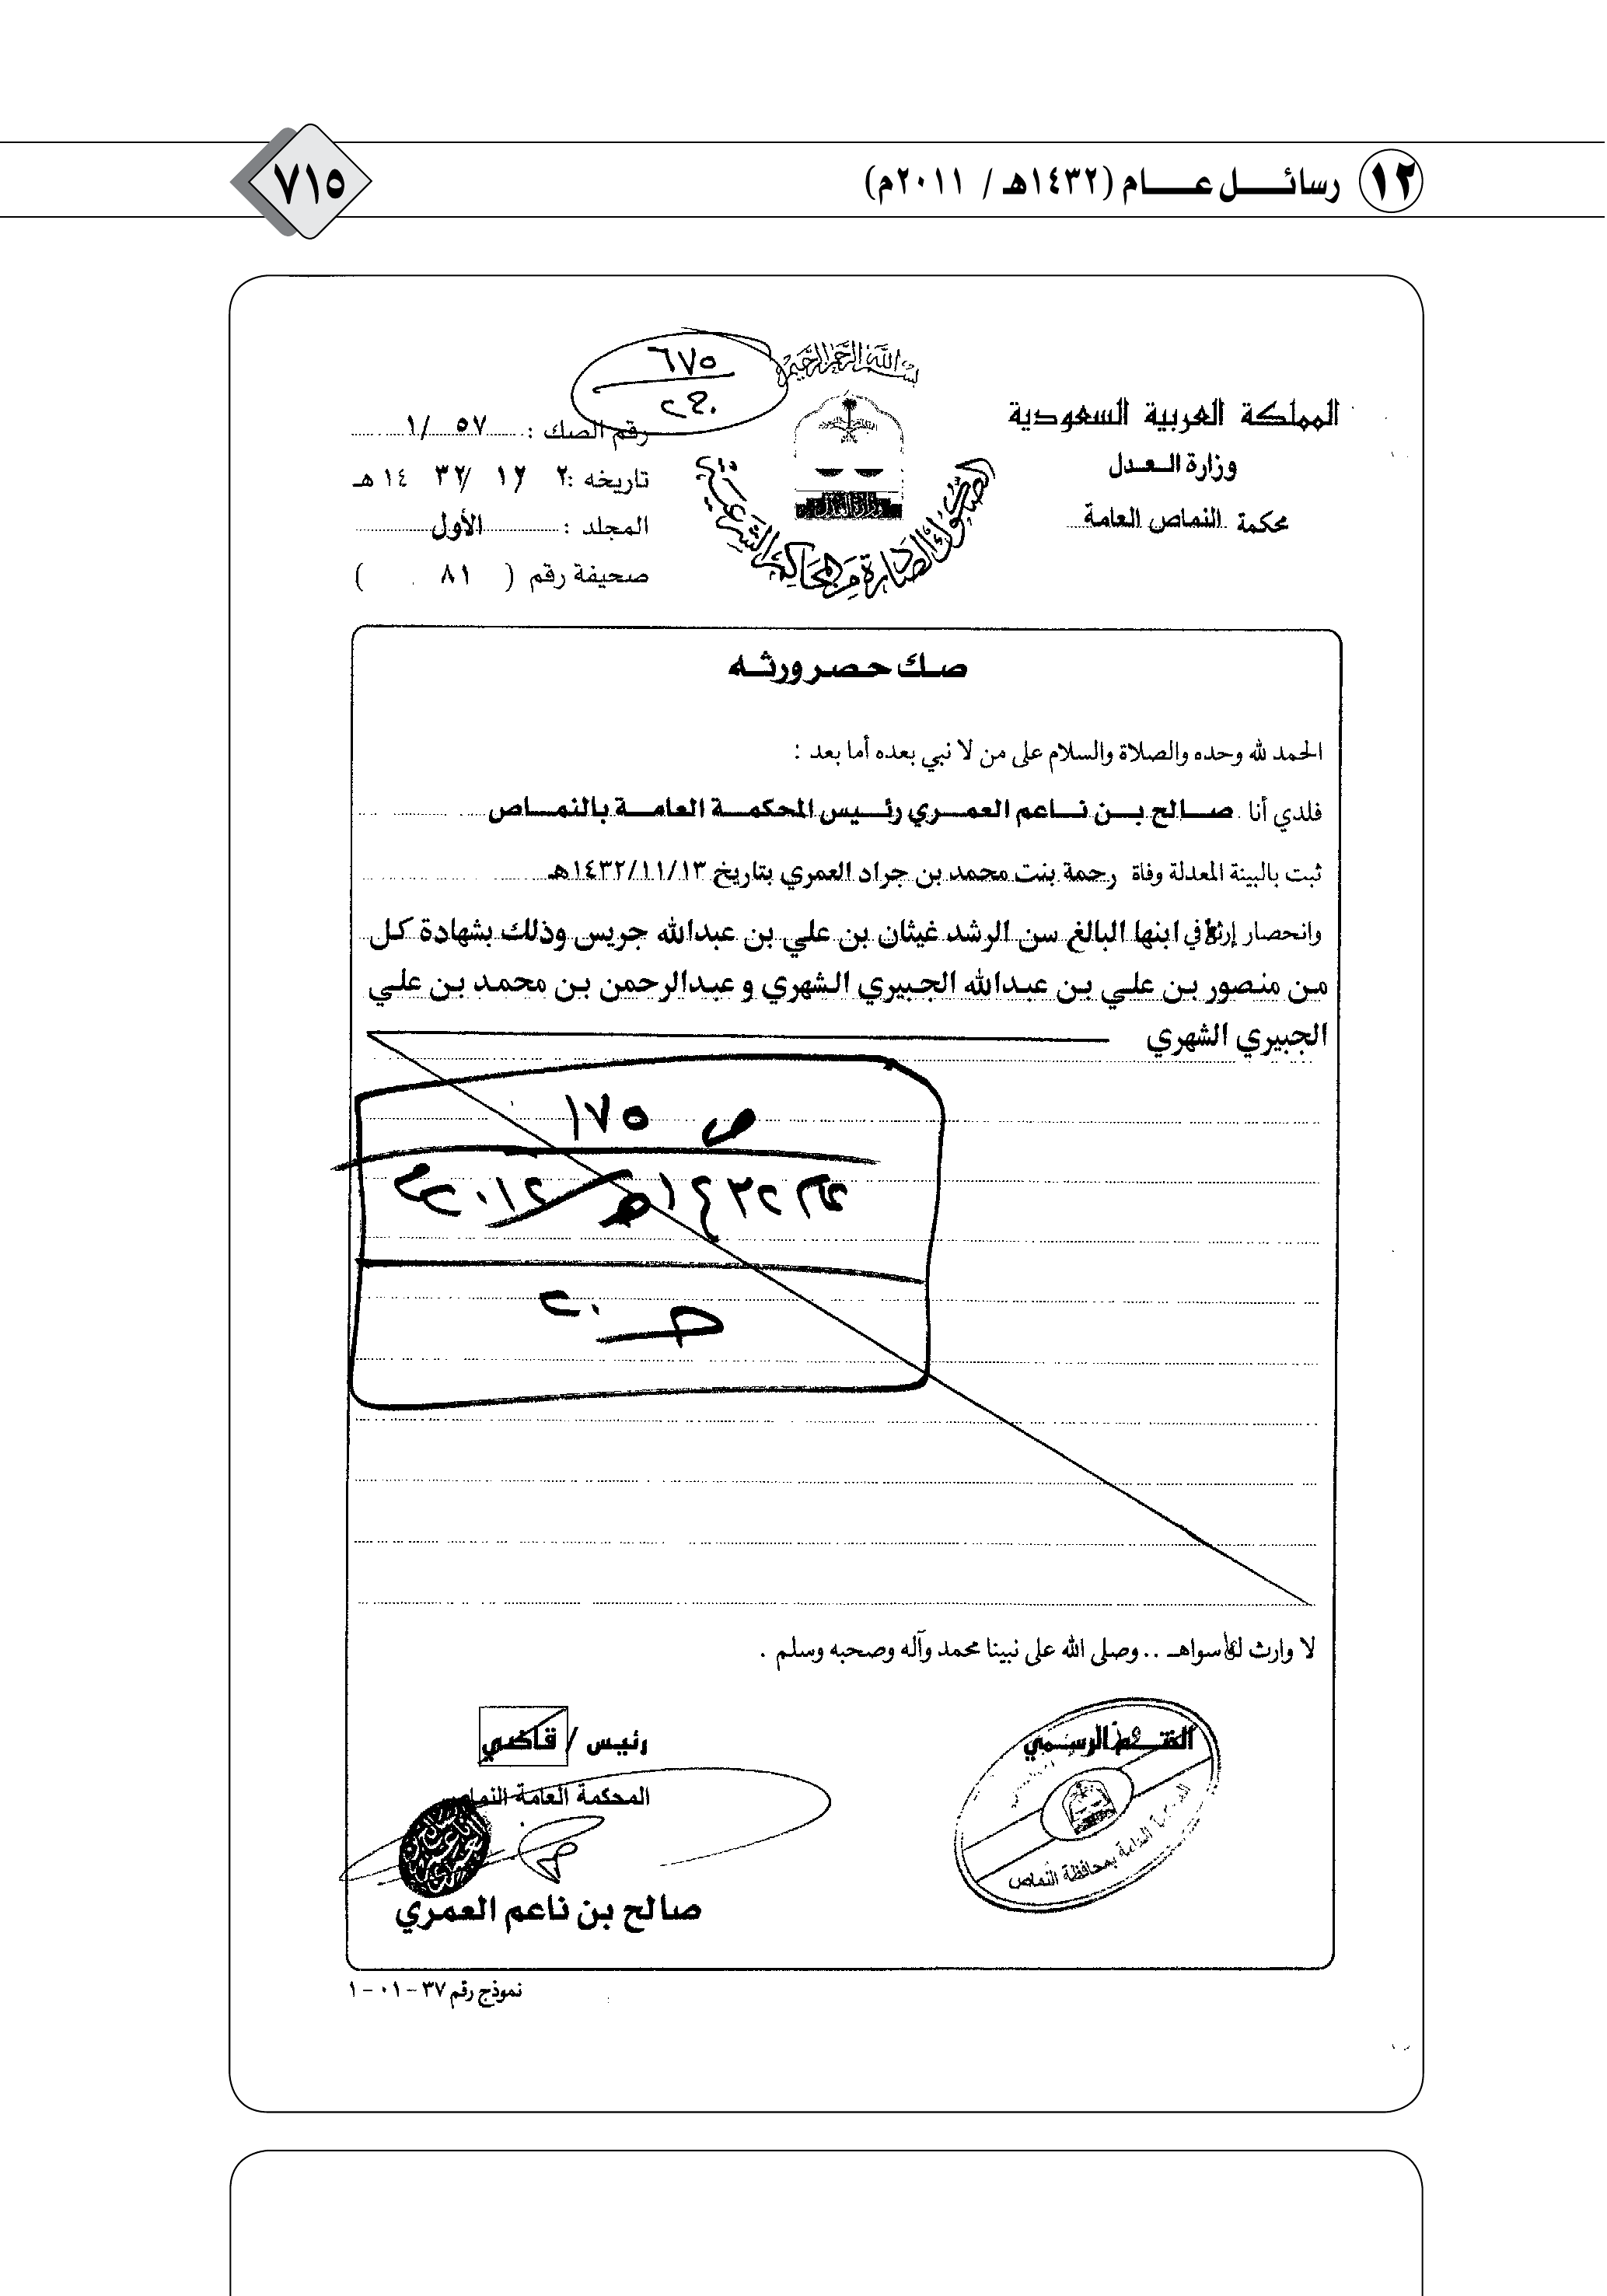 ١٢ رسائل عام (١٤٣٢هـ / ٢٠١١م)
٧١٥
بسم الله الرحمن الرحيم
٦٧٥
المملكة العربية السعودية
وزارة العدل
محكمة النماص العامة
الصكوك الصادرة من المحاكم الشرعية
رقم الصك : ٥٧ /١
تاريخه : ٢ / ١٢ / ٣٢ ١٤ هـ
المجلد : الأول
صحيفة رقم ( ٨١ )
صك حصر ورثه
الحمد لله وحده والصلاة والسلام على من لا نبي بعده أما بعد :
فلدي أنا صالح بن ناعم العمري رئيس المحكمة العامة بالنماص
ثبت بالبينة المعدلة وفاة رحمة بنت محمد بن جراد العمري بتاريخ ١٤٣٢/١١/١٣هـ
وانحصار إرثها في ابنها البالغ سن الرشد غيثان بن علي بن عبدالله جريس وذلك بشهادة كل
من منصور بن علي بن عبدالله الجبيري الشهري و عبدالرحمن بن محمد بن علي
الجبيري الشهري
ص ١٧٥
١٤٣٢هـ / ٢٠١١م
لا وارث لها سواهـ .. وصلى الله على نبينا محمد وآله وصحبه وسلم .
الختم الرسمي
المحكمة العامة بمحافظة النماص
رئيس / قاضي
المحكمة العامة النماص
صالح بن ناعم العمري
نموذج رقم ٣٧ - ٠١ - ١